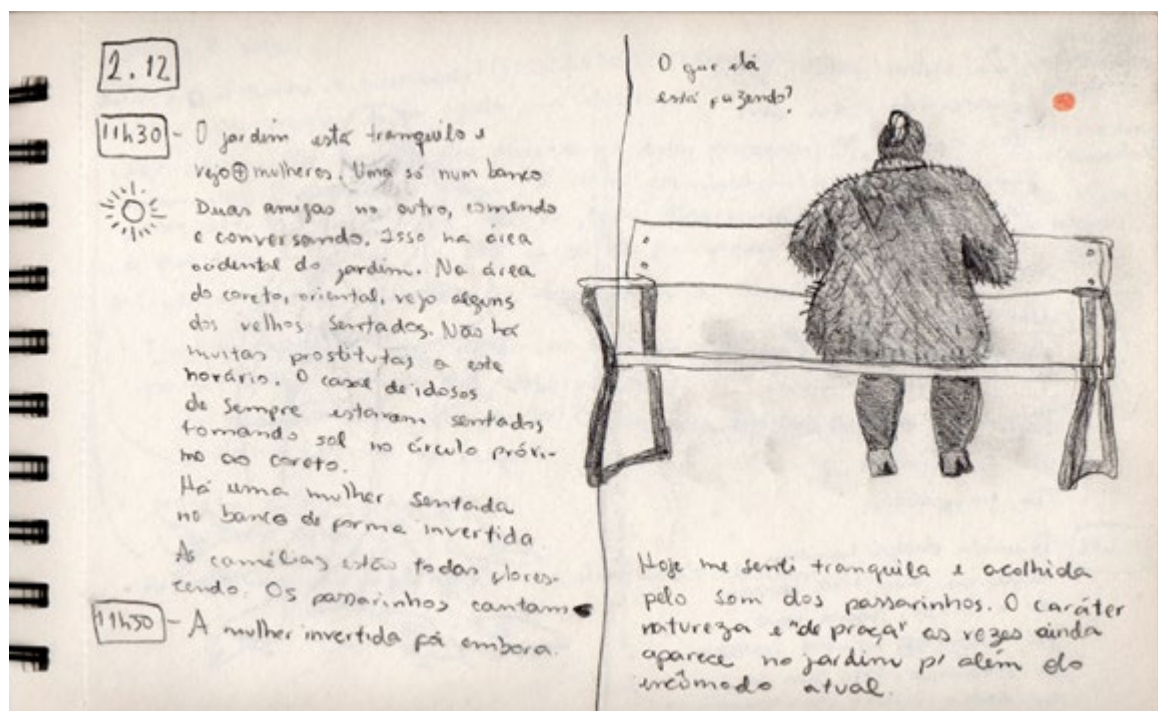 2.12
11h30 - O jardim está tranquilo e
vejo ⊕ mulheres. Uma só num banco
Duas amigas no outro, comendo
e conversando. Isso na área
ocidental do jardim. Na área
do coreto, oriental, vejo alguns
dos velhos sentados. Não há
muitas prostitutas a este
horário. O casal de idosos
de sempre estavam sentados
tomando sol no círculo próxi-
mo ao coreto.
Há uma mulher sentada
no banco de forma invertida
As camélias estão todas flores-
cendo. Os passarinhos cantam
11h50 - A mulher invertida foi embora.
O que ela
está fazendo?
Hoje me senti tranquila e acolhida
pelo som dos passarinhos. O caráter
natureza e "de praça" as vezes ainda
aparece no jardim p/ além do
incômodo atual.